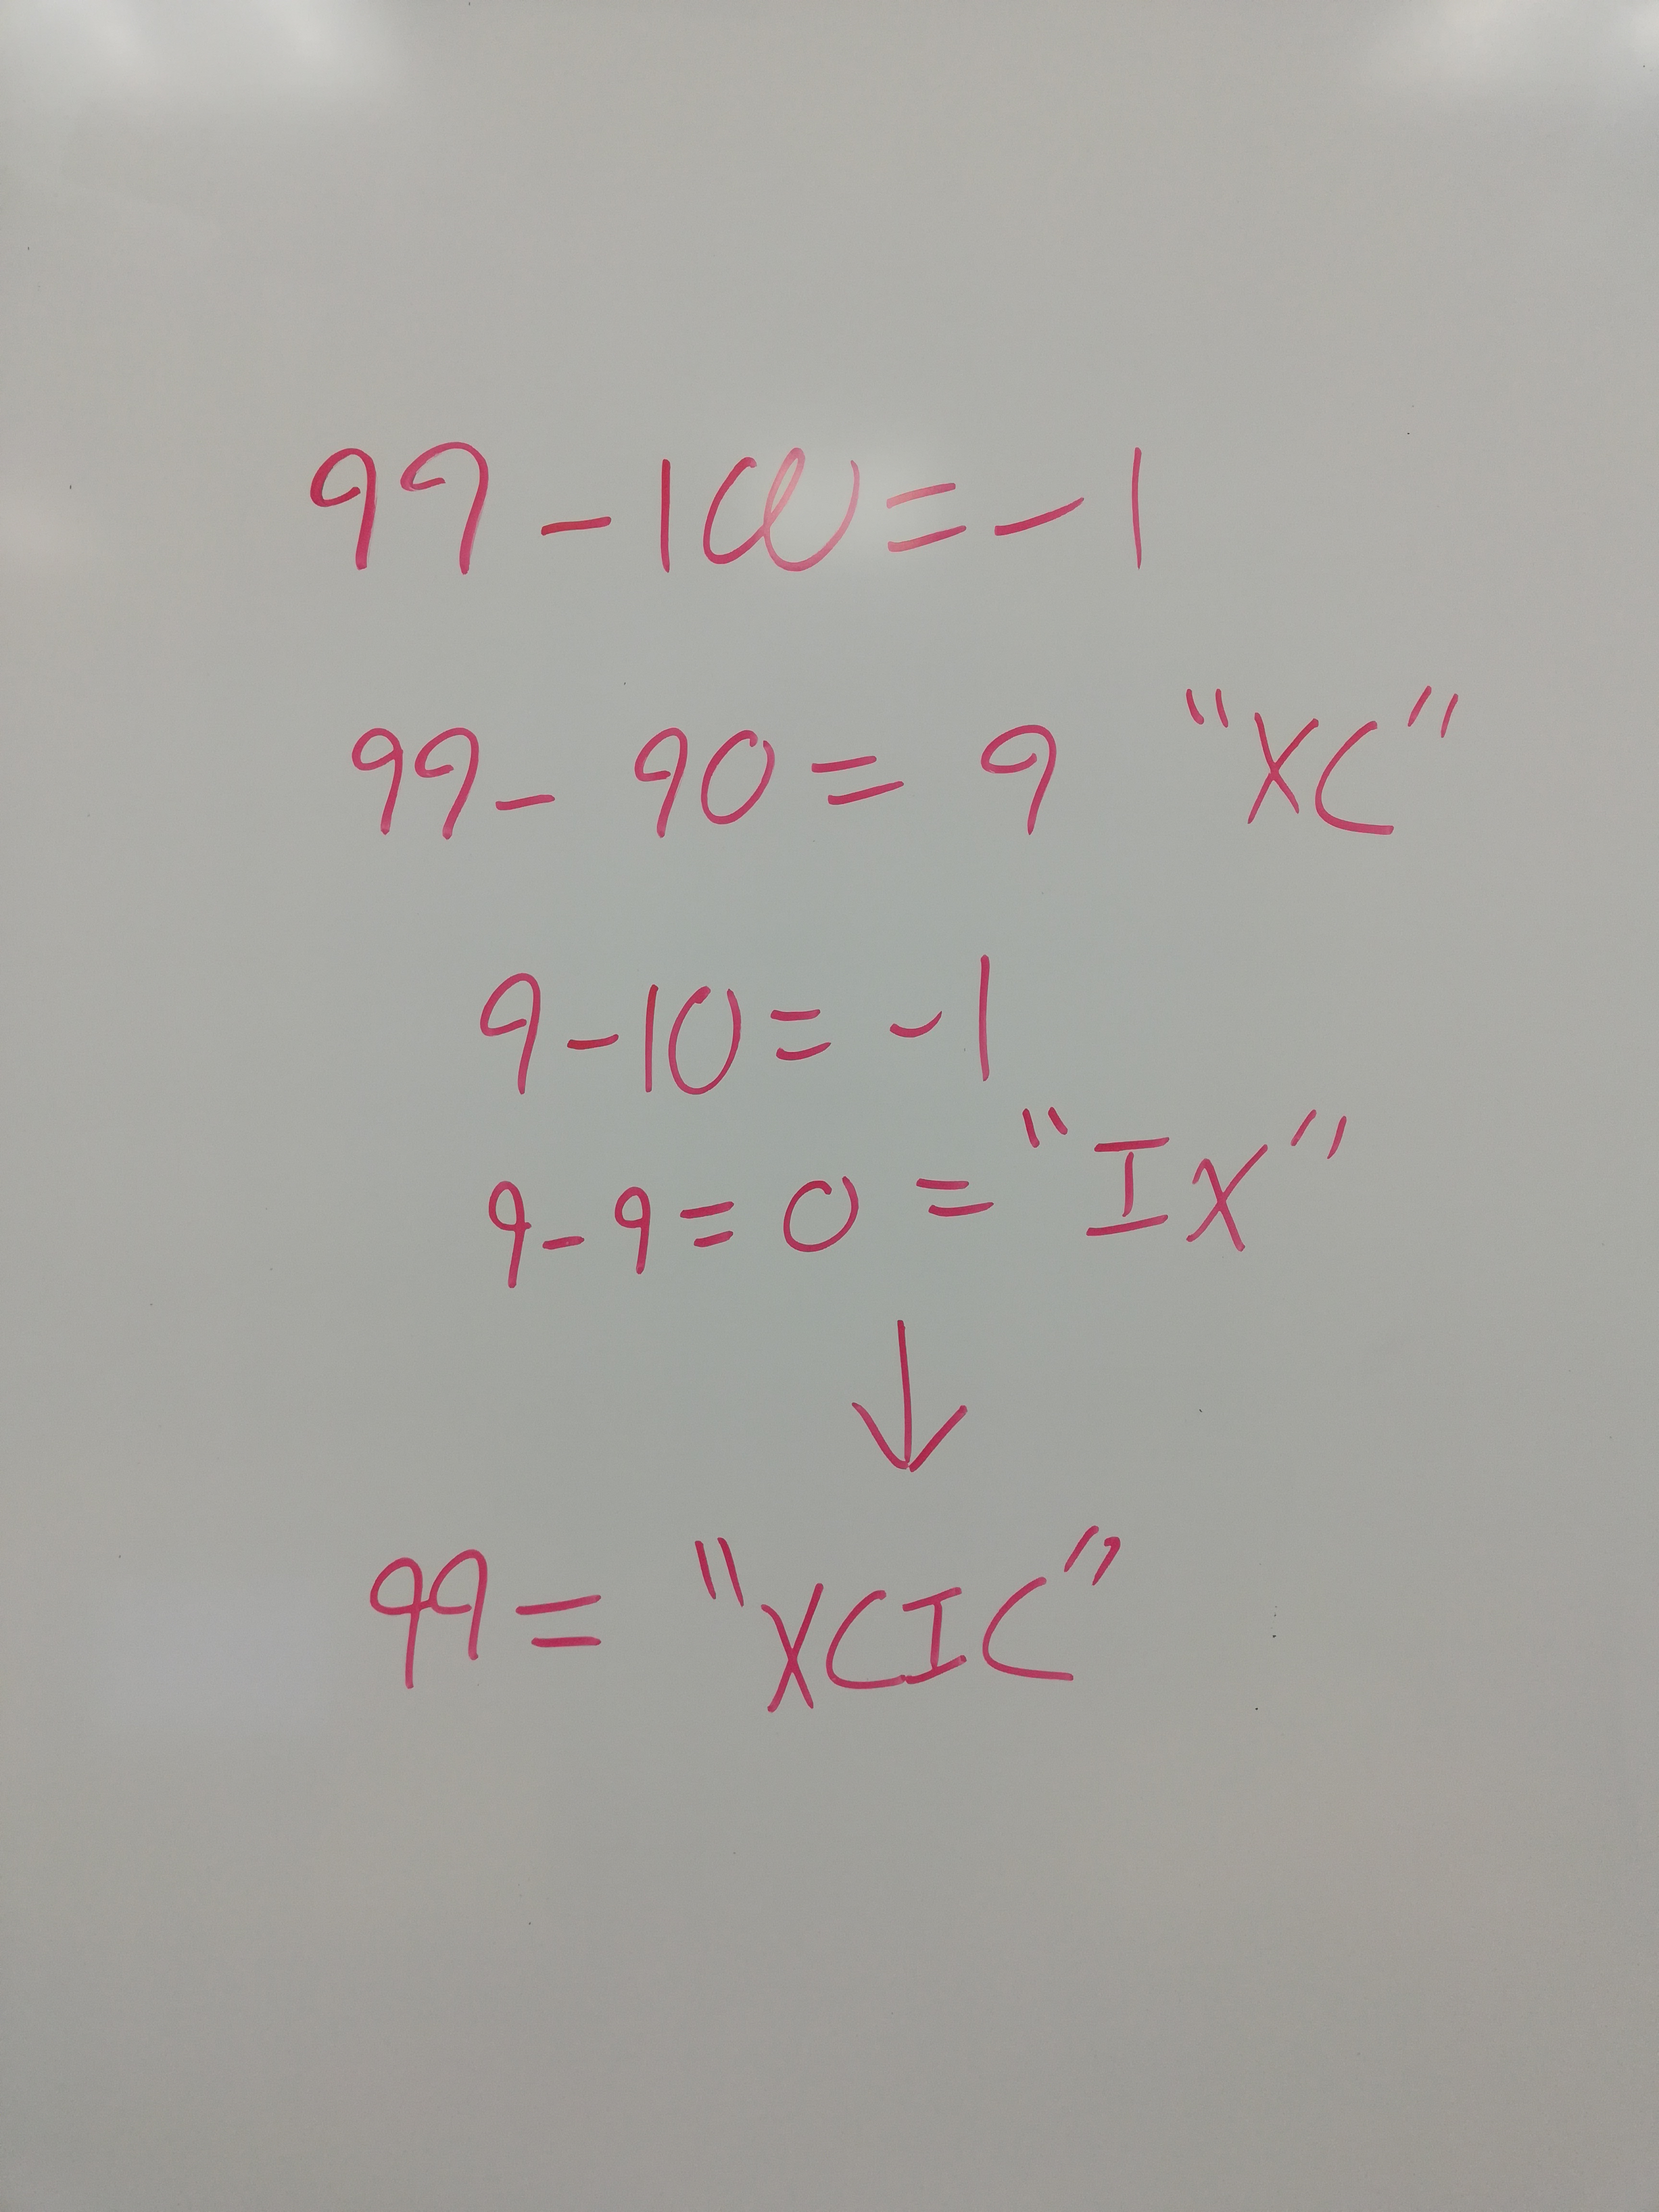 99 - 100 = -1
99 - 90 = 9 "XC"
9 - 10 = -1
9 - 9 = 0 = "IX"
↓
99 = "XCIC"